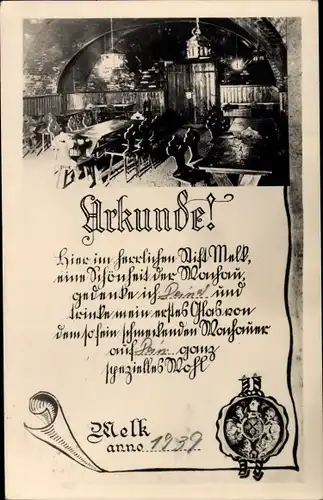 Urkunde!
Hier im herrlichen Stift Melk,
eine Schönheit der Wachau,
gedenke ich Deiner und
trinke mein erstes Glas von
dem so fein schmeckenden Wachauer
auf Dein ganz
spezielles Wohl
Melk
anno 1939